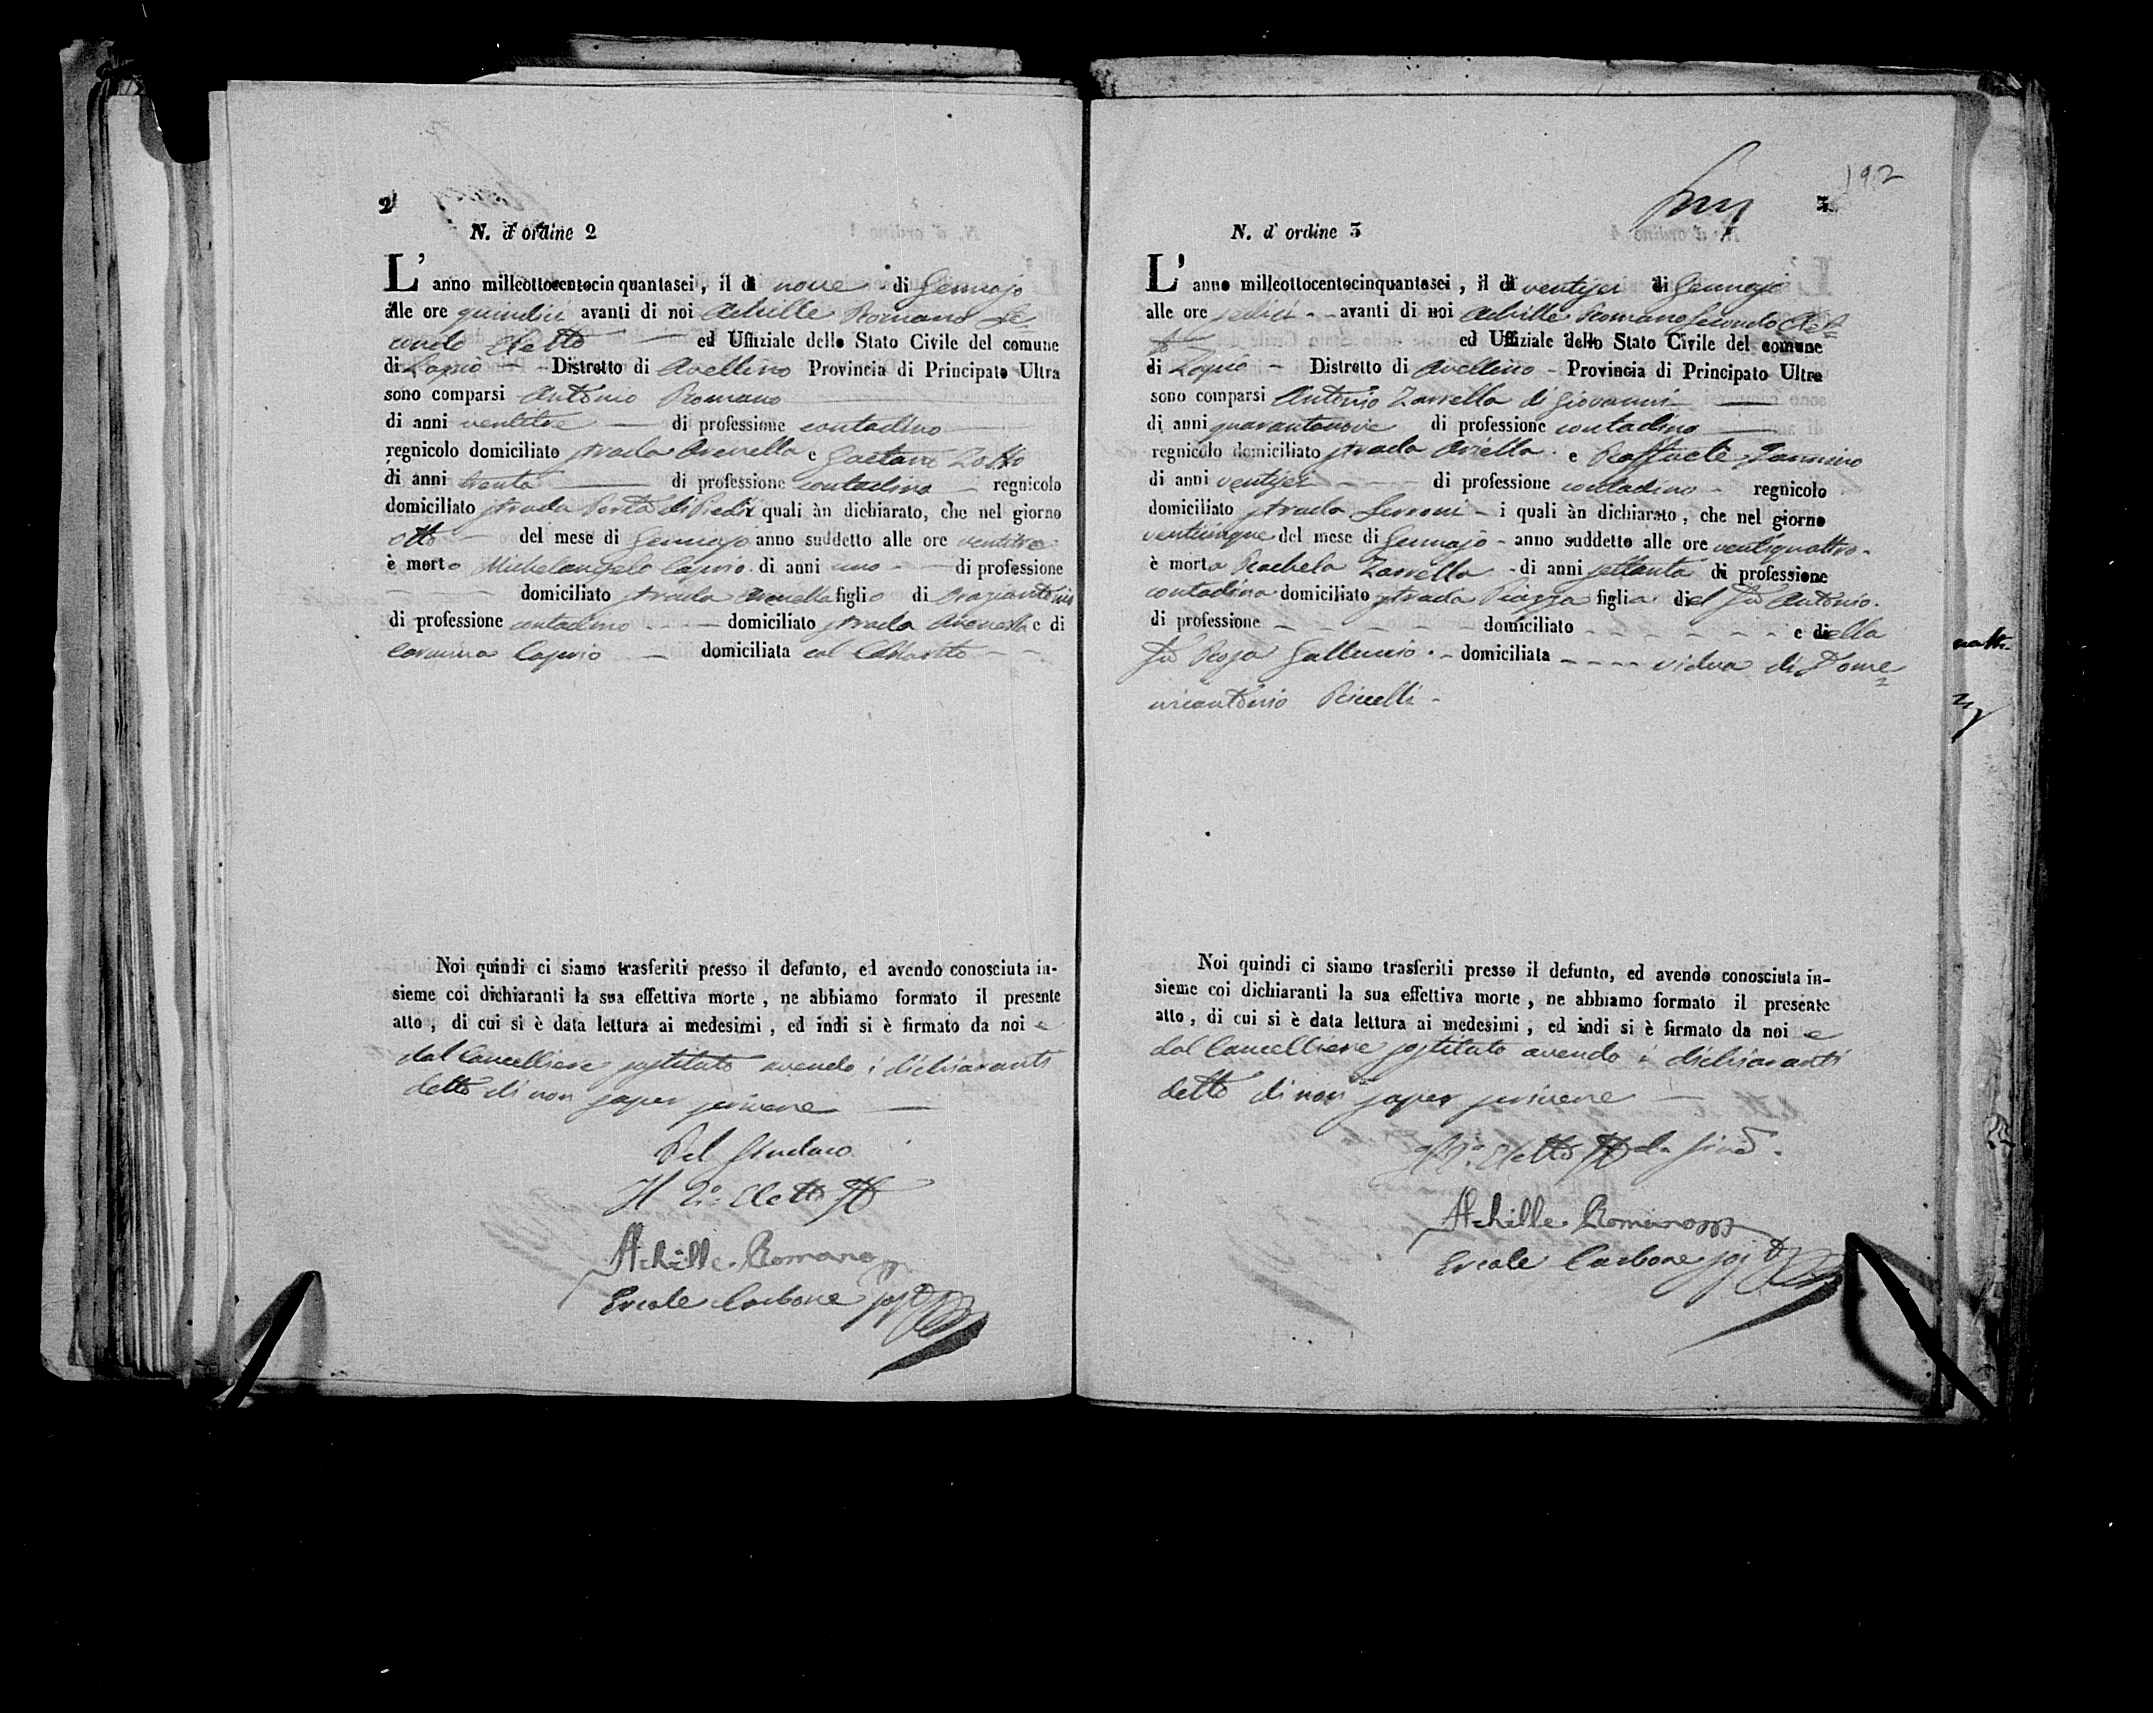 2
N. d' ordine 2
L' anno milleottocentocinquantasei, il dì nove di Gennajo
alle ore quindici avanti di noi Achille Romano Se=
condo Eletto ed Uffiziale dello Stato Civile del comune
di Lapio Distretto di Avellino Provincia di Principato Ultra
sono comparsi Antonio Romano
di anni ventitre di professione contadino
regnicolo domiciliato strada Arenella e Gaetano Zotto
di anni trenta di professione contadino regnicolo
domiciliato strada Porta di i quali àn dichiarato, che nel giorno
otto del mese di Gennajo anno suddetto alle ore ventitre
è morto Michelangelo Caprio di anni uno di professione
domiciliato strada Arenella figlio di Graziantonio
di professione contadino domiciliato strada Arenella e di
Carmina Caprio domiciliata col Marito
Noi quindi ci siamo trasferiti presso il defunto, ed avendo conosciuta in-
sieme coi dichiaranti la sua effettiva morte, ne abbiamo formato il presente
atto, di cui si è data lettura ai medesimi, ed indi si è firmato da noi e
dal Cancelliere sostituto avendo i dichiaranti
detto di non saper scrivere
Pel Sindaco
Il 2.° Eletto
Achille Romano
Ercole Carbone sost
192
3
N. d' ordine 3
L' anno milleottocentocinquantasei, il dì ventisei di Gennajo
alle ore sedici avanti di noi Achille Romano Secondo Elet=
to ed Uffiziale dello Stato Civile del comune
di Lapio Distretto di Avellino Provincia di Principato Ultra
sono comparsi Antonio Zarrella di Giovanni
di anni quarantanove di professione contadino
regnicolo domiciliato strada Ariella e Raffaele Iannino
di anni ventisei di professione contadino regnicolo
domiciliato strada i quali àn dichiarato, che nel giorno
venticinque del mese di Gennajo anno suddetto alle ore ventiquattro
è morta Rachela Zarrella di anni settanta di professione
contadina domiciliato strada Piazza figlia del fù Antonio
di professione domiciliato e della
fù Rosa Galluccio domiciliata vidua di Dome=
nicantonio Piscelli
Noi quindi ci siamo trasferiti presso il defunto, ed avendo conosciuta in-
sieme coi dichiaranti la sua effettiva morte, ne abbiamo formato il presente
atto, di cui si è data lettura ai medesimi, ed indi si è firmato da noi e
dal Cancelliere sostituto avendo i dichiaranti
detto di non saper scrivere
Il 2.° Eletto
Achille Romano
Ercole Carbone sost